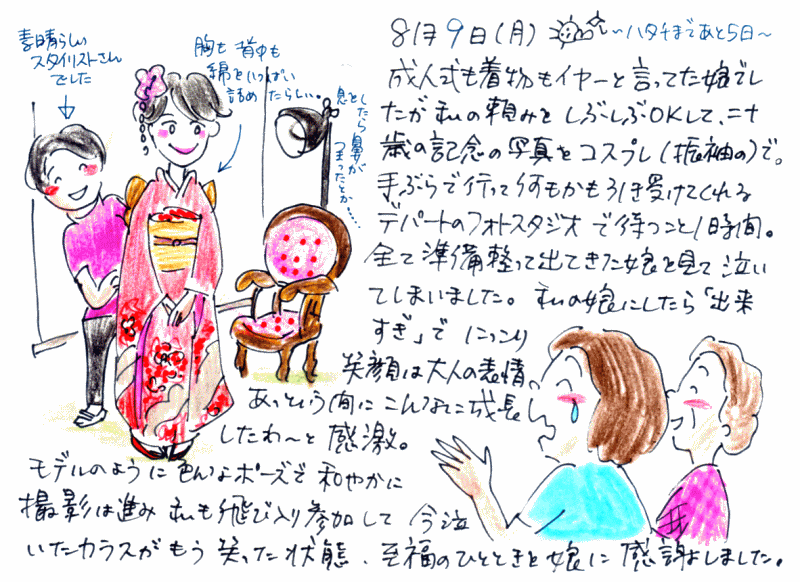 8月9日(月) ～ハタチまであと5日～
素晴らしい
スタイリストさん
でした
胸も 背中も
綿をいっぱい
詰めたらしい。
息をしたら
鼻が
つまったとか……
成人式も着物もイヤーと言ってた娘でし
たが私の頼みをしぶしぶOKして、二十
歳の記念の写真をコスプレ(振袖の)で。
手ぶらで行って何もかも引き受けてくれる
デパートのフォトスタジオで待つこと1時間。
全て準備整って出てきた娘を見て泣い
てしまいました。私の娘にしたら「出来
すぎ」でにっこり
笑顔は大人の表情
あっという間にこんなに成長
したわ～と感激。
モデルのように色んなポーズで和やかに
撮影は進み私も飛び入り参加して今泣
いたカラスがもう笑った状態、至福のひとときを娘に感謝しました。